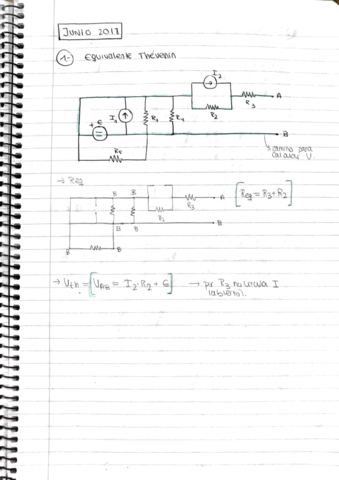 JUNIO 2018
1- Equivalente Thévenin
I2
A
R3
+ E
I1
R1
R4
R2
B
R5
camino para calcular V.
→ Req
B B
A
R3
[Req = R3 + R2]
R2
B B B
B B
→ Vth = [VAB = I2·R2 + E] → por R3 no circula I
(abierto).